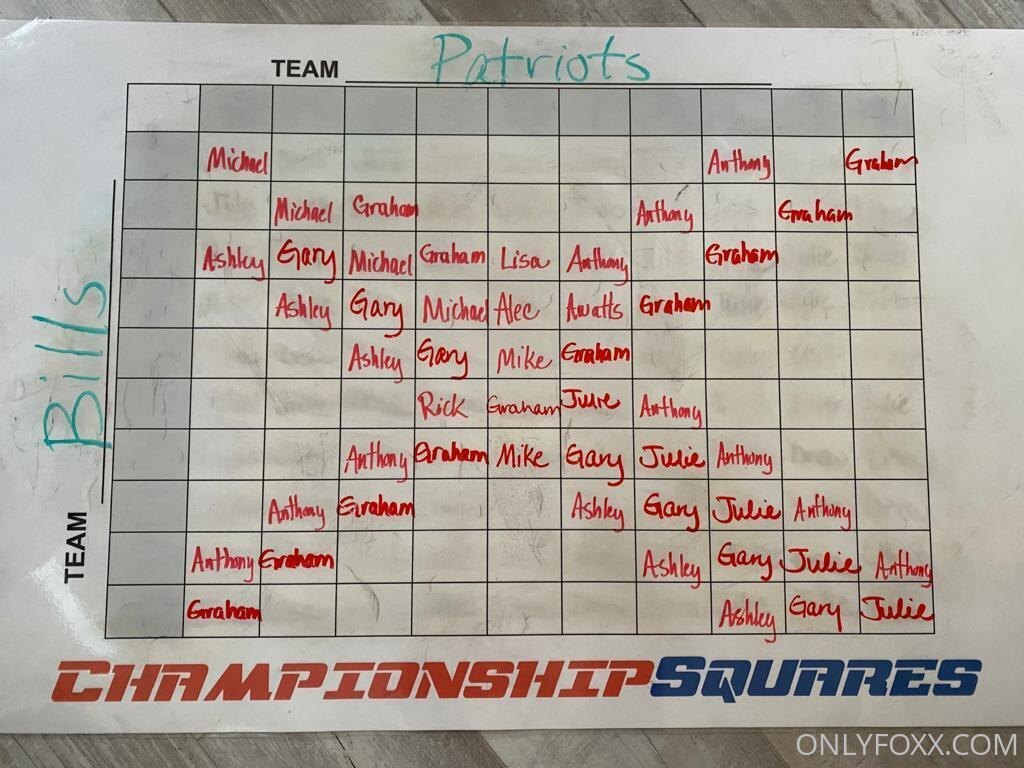 TEAM Patriots
Michael Anthony Graham
Michael Graham Anthony Graham
Ashley Gary Michael Graham Lisa Anthony Graham
Ashley Gary Michael Alec Awatts Graham
Ashley Gary Mike Graham
Rick Graham Julie Anthony
Anthony Graham Mike Gary Julie Anthony
Anthony Graham Ashley Gary Julie Anthony
Anthony Graham Ashley Gary Julie Anthony
Graham Ashley Gary Julie
TEAM Bills
CHAMPIONSHIPSQUARES
ONLYFOXX.COM